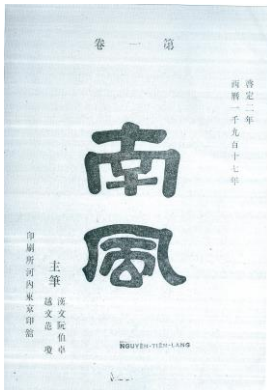 第一卷
啓定二年
西曆一千九百十七年
南風
主筆
漢文阮伯卓
越文范瓊
印刷所河內東京印館
NGUYỄN-TIẾN-LÃNG